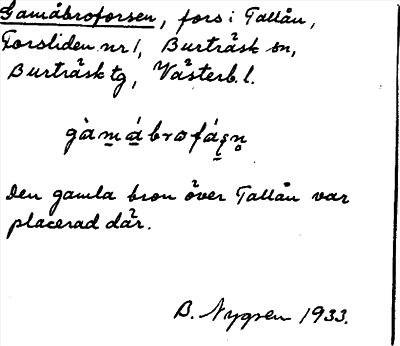 Gamåbroforsen, fors i Tallån,
Forsliden nr 1, Burträsk sn,
Burträsk tg, Västerb. l.
gàmábrofáʂn̥
Den gamla bron över Tallån var
placerad där.
B. Nygren 1933.